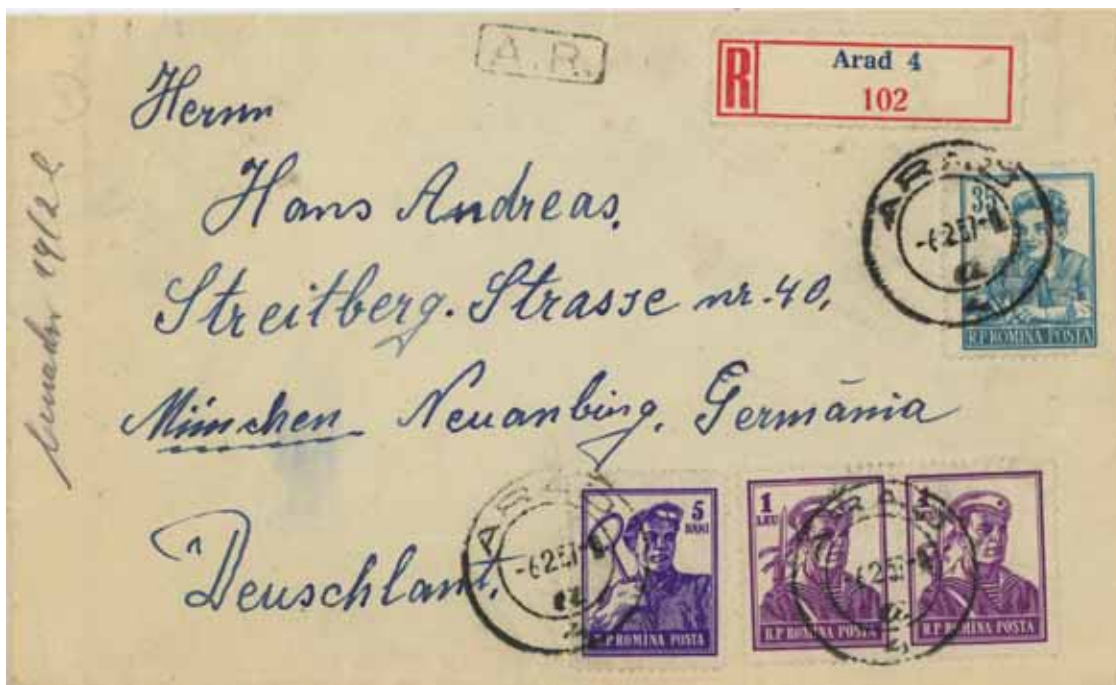 A.R.
R
Arad 4
102
Herrn
Hans Andreas,
Streitberg-Strasse nr. 40,
München Neuanbing, Germánia
Deuschlant,
14/2
ARAD
-6.2.57
35
R.P.ROMINA POSTA
ARAD
-6.2.57
5
BANI
R.P.ROMINA POSTA
1
LEU
R.P.ROMINA POSTA
ARAD
-6.2.57
1
R.P.ROMINA POSTA